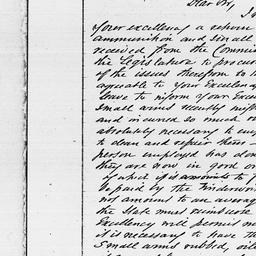 Dear Sir,
I
Your excellency a return
ammunition and Small
received from the Commis
the Legislature to procur
of the issues therefrom to
agreeable to Your Excellenc
leave to inform Your Exce
Small arms
and injured so much
absolutely necessary to emp
to clean and repair them
person employed has clean
they are now in good or
of which it is amounts to
be paid by the
not amount to an averag
the State must reimburse
Excellency will permit me
it is necessary to have th
Small arms rubbed, oile